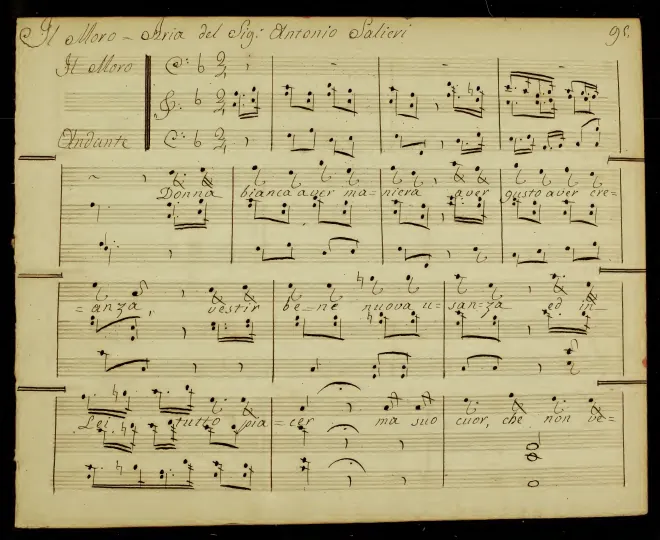 Il Moro - Aria del Sig: Antonio Salieri
Il Moro
Andante
Donna bianca aver ma=niera aver gusto aver cre=
=anza, vestir be=ne nuova u=san=za ed in
Lei tutto pia=cer ma suo cuor, che non ve=